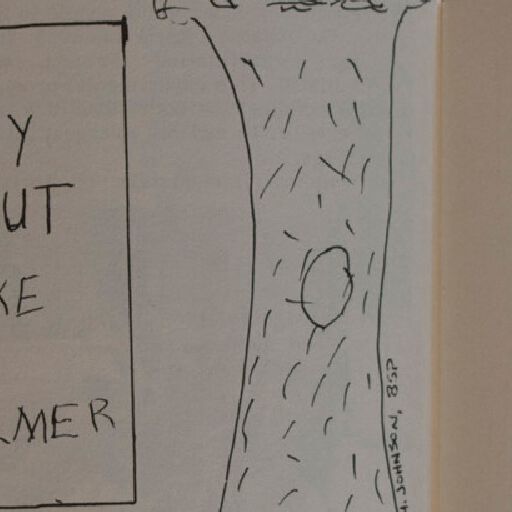 Y
UT
KE
LMER
H. JOHNSON, BSP